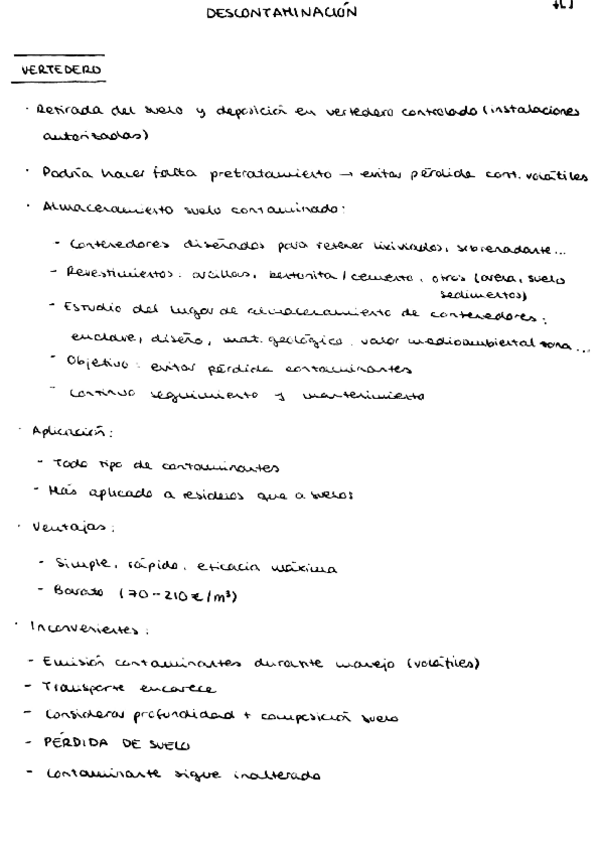 DESCONTAMINACIÓN
VERTEDERO
· Retirada del suelo y deposición en vertedero controlado (instalaciones
autorizadas)
· Podría hacer falta pretratamiento → evitar pérdida cont. volátiles
· Almacenamiento suelo contaminado:
- Contenedores diseñados para retener lixiviados, sobrenadante...
- Revestimientos: arcillas, bentonita/cemento, otros (arena, suelo
sedimentos)
- Estudio del lugar de almacenamiento de contenedores:
enclave, diseño, mat. geológico, valor medioambiental zona...
- Objetivo: evitar pérdida contaminantes
- Continuo seguimiento y mantenimiento
· Aplicación:
- Todo tipo de contaminantes
- Más aplicado a residuos que a suelos
· Ventajas:
- Simple, rápido, eficacia máxima
- Barato (70-210 €/m³)
· Inconvenientes:
- Emisión contaminantes durante manejo (volátiles)
- Transporte encarece
- Considerar profundidad + composición suelo
- PÉRDIDA DE SUELO
- Contaminante sigue inalterado